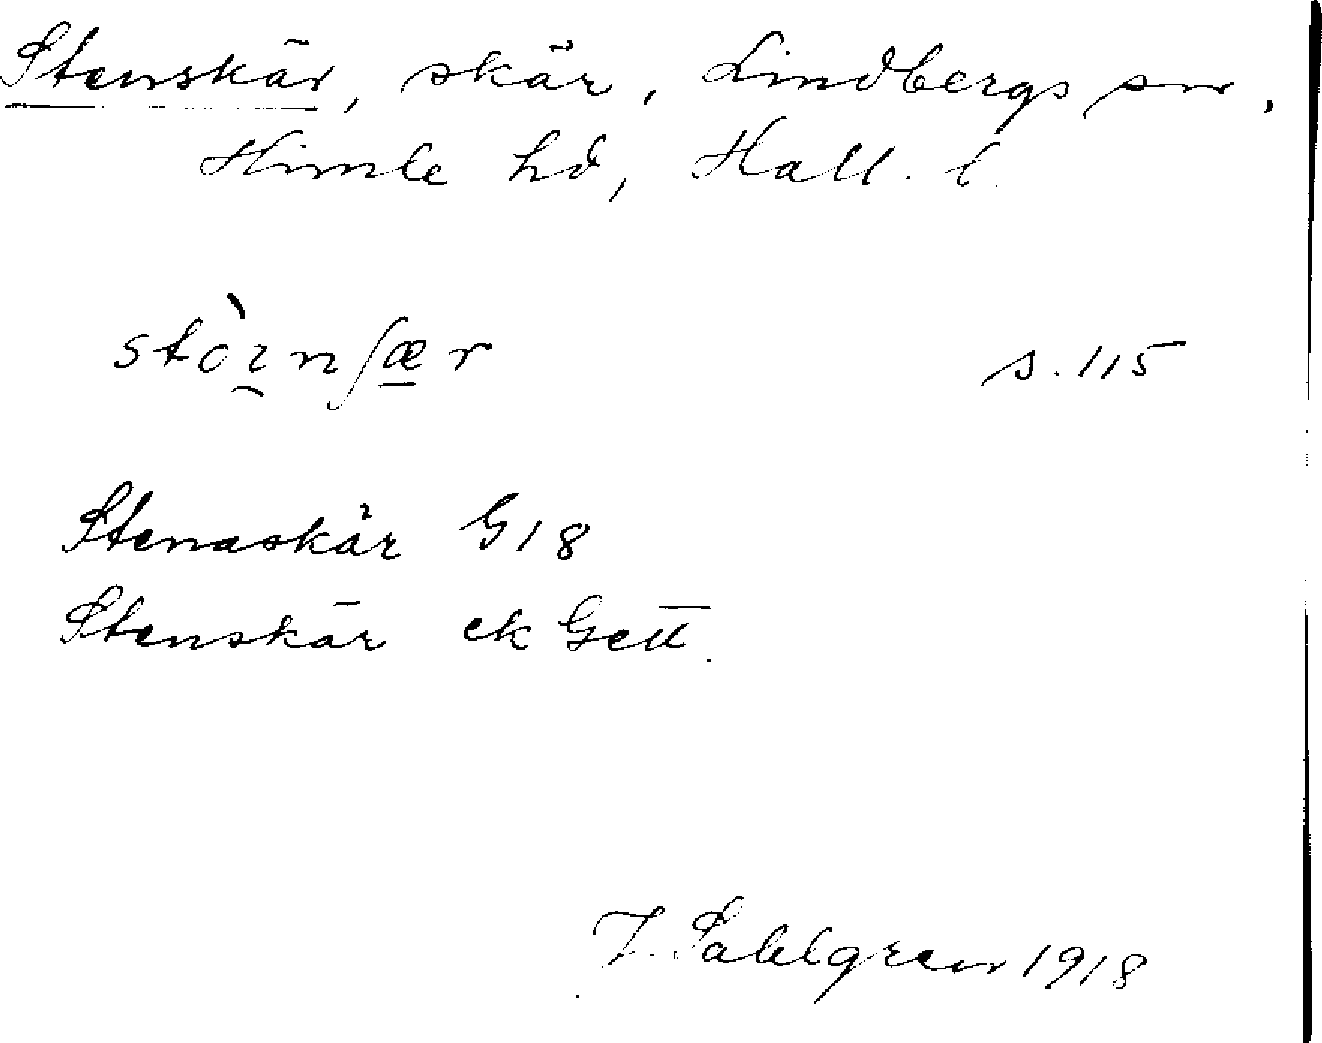 Stenskär, skär, Lindbergs sn,
Himle hd, Hall. l.
stòınʃær s. 115
Stenaskär G18
Stenskär ek Gett.
J. Sahlgren 1918